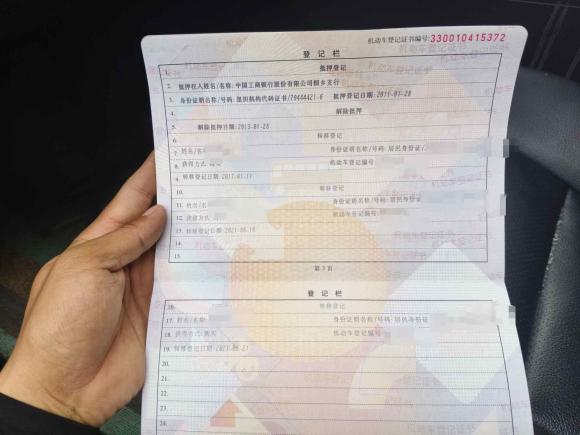 机动车登记证书编号:330010415372
登记栏
1. 抵押登记
2. 抵押权人姓名/名称:中国工商银行股份有限公司桐乡支行
3. 身份证明名称/号码:组织机构代码证书/70444421-6 抵押登记日期:2011-01-28
4. 解除抵押
5. 解除抵押日期:2013-01-28
6. 转移登记
7. 姓名/名 身份证明名称/号码:居民身份证/
8. 获得方式: 机动车登记编号
9. 转移登记日期:2017-01-11
10. 转移登记
11. 姓名/名 身份证明名称/号码:居民身份证
12. 获得方式: 机动车登记编号:
13. 转移登记日期:2021-06-10
14.
15.
第 3 页
登记栏
16. 转移登记
17. 姓名/名称 身份证明名称/号码:居民身份证
18. 获得方式:购买 机动车登记编号:
19. 转移登记日期:2023-06-21
20.
21.
22.
23.
24.